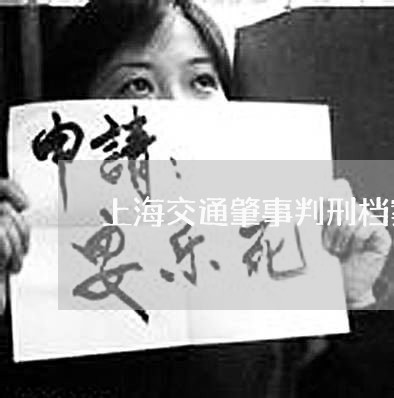 申請：
上海交通肇事判刑档
安乐死